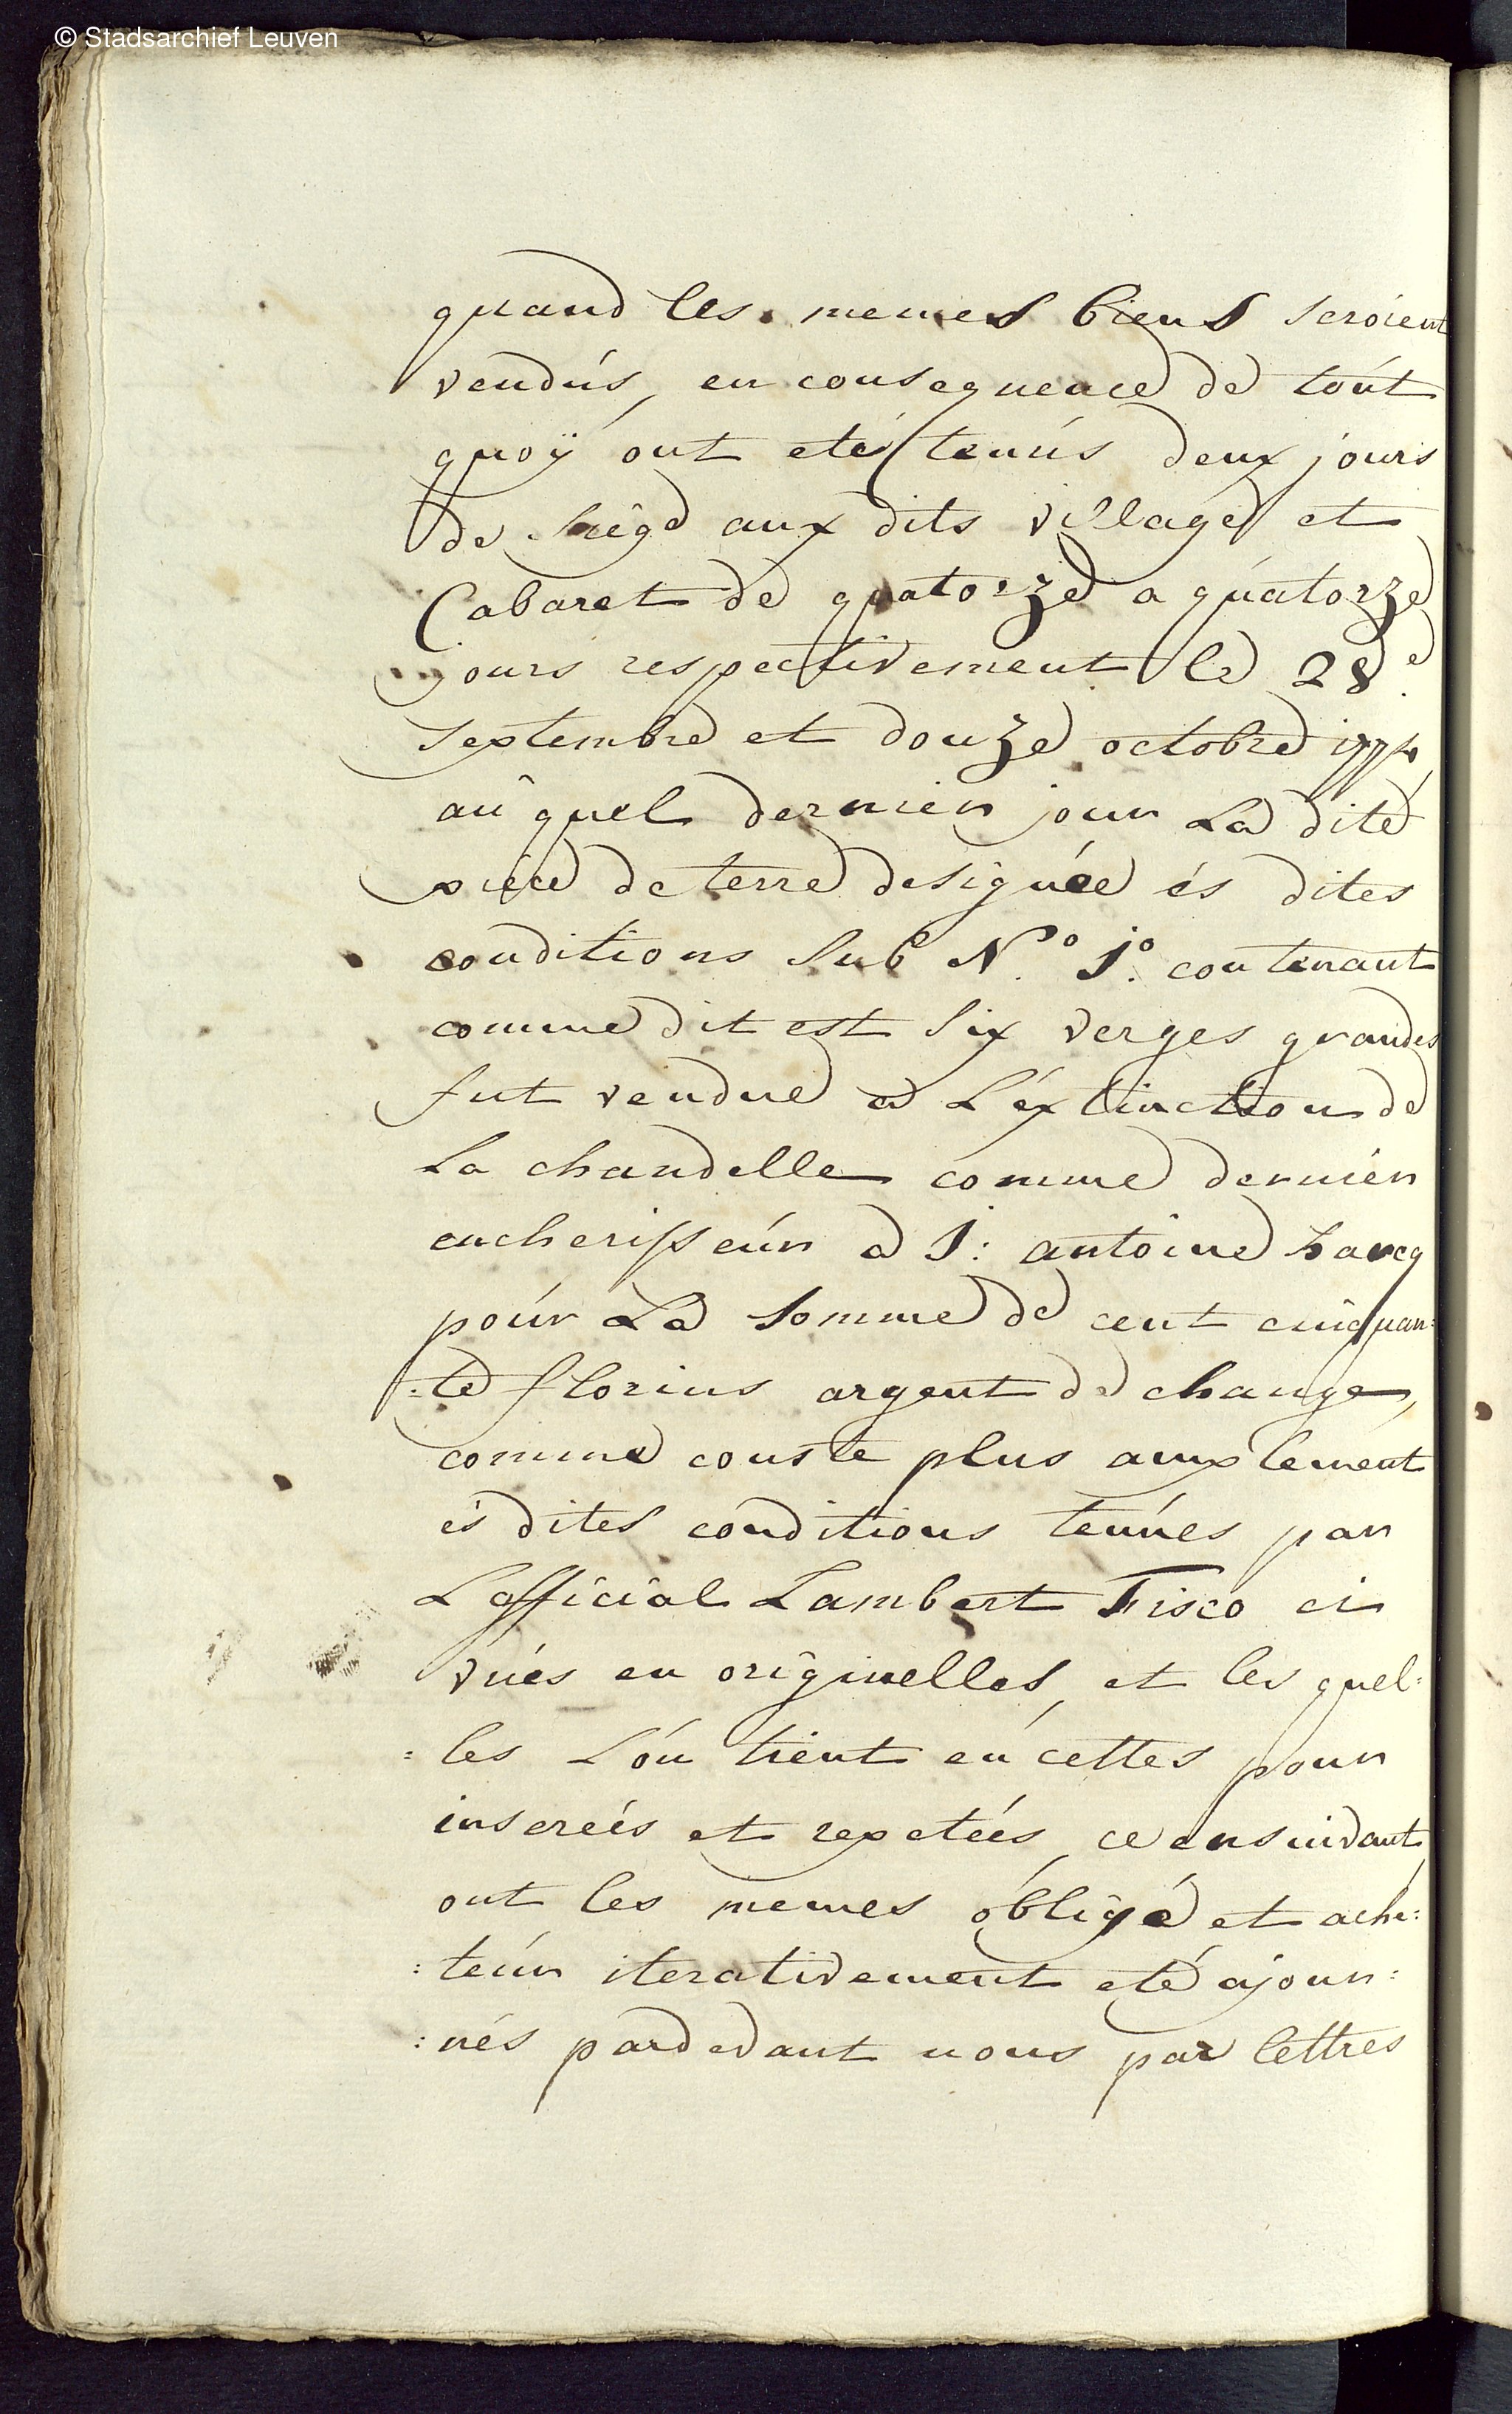 © Stadsarchief Leuven
quand les memes biens seroient
vendús, en consequence de toút
quoÿ ont eté tenús deux jours
de siêge aux dits village et
Cabaret de quatorze a quatorze
jours respectivement le 28.e
septembre et douze octobre 1774
aûquel dernier jour La dite
piece de terre designée és dites
conditions sub N.o 1.o contenant
comme dit est six verges grandes
fut vendue a L'éxtinction de
La chandelle comme dernier
encherisseúr a J: antoine
poúr La somme de cent cinquan=
=te florins argent de change,
comme conste plus amplement
és dites conditions tenúes par
L'official Lambert Fisco ci
vúes en originelles, et les quel=
=les L'ón tient en cettes pour
insereés et repeteés, ce ensuivant
ont les memes óbligé et ache=
=teúr iterativement eté ajour=
=nés pardevant nous par lettres